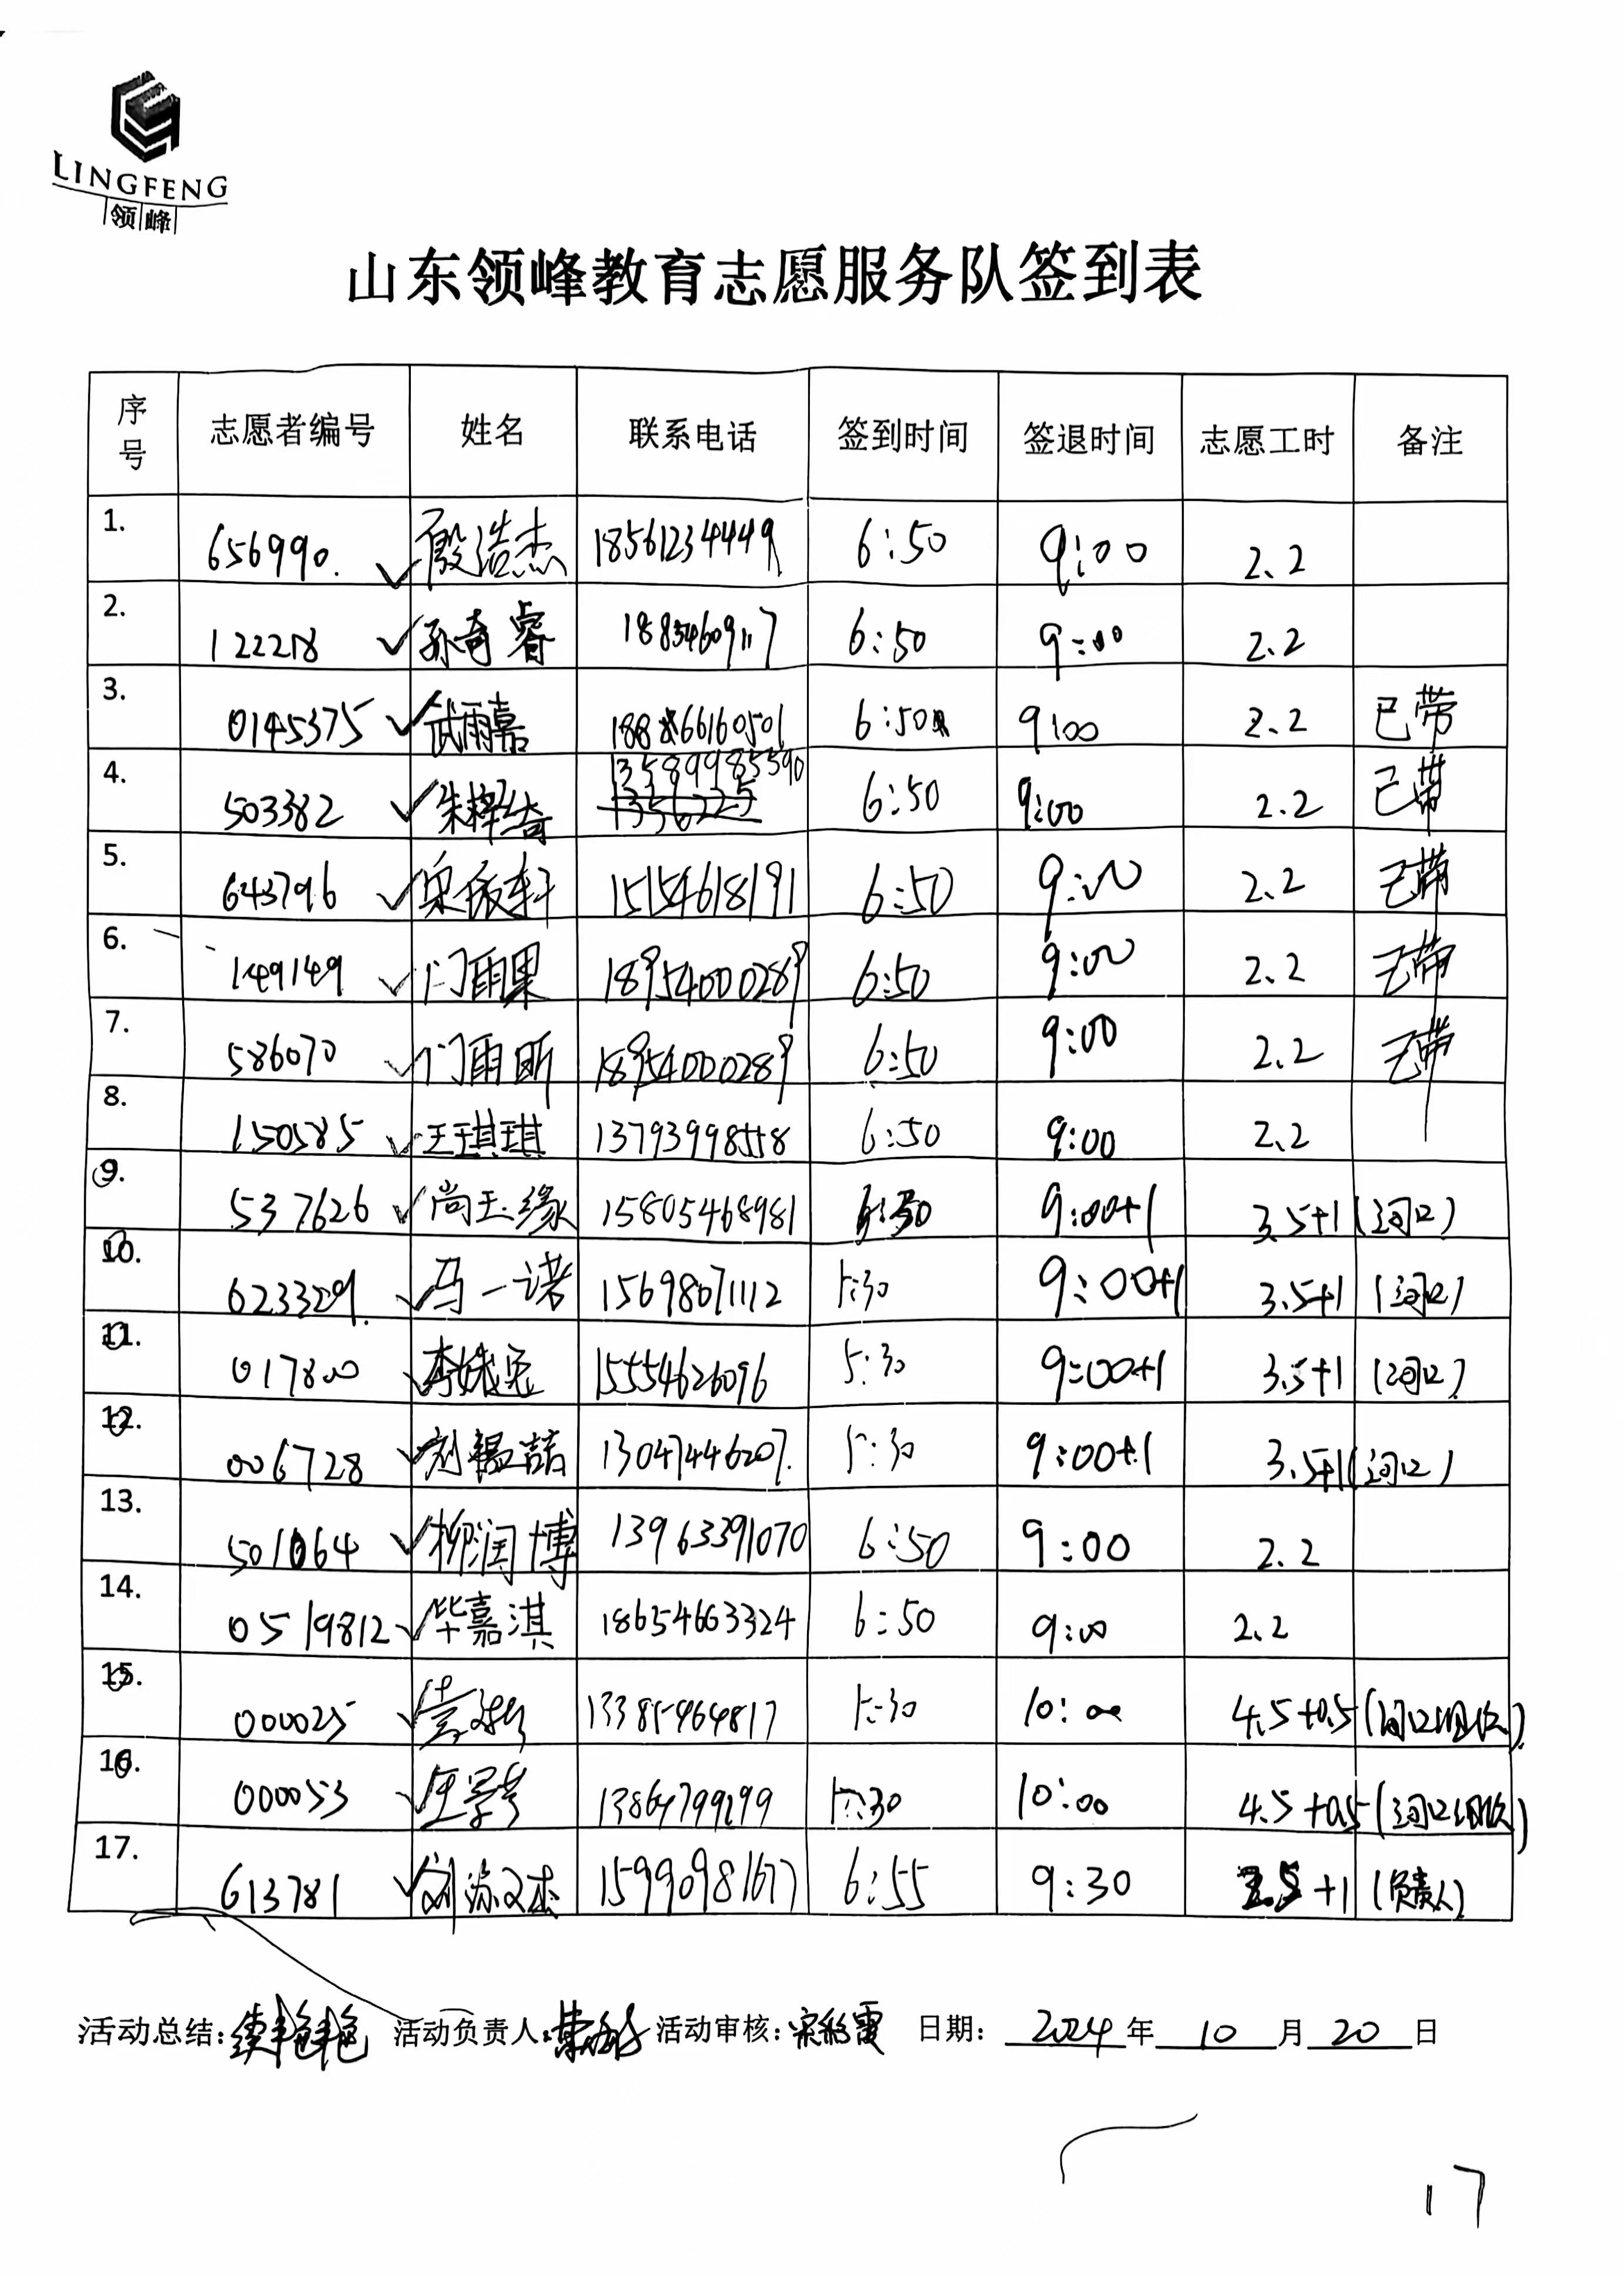 LINGFENG
领峰
山东领峰教育志愿服务队签到表
序号 志愿者编号 姓名 联系电话 签到时间 签退时间 志愿工时 备注
1. 656990. 殷浩杰 18561234449 6:50 9:00 2.2
2. 122218 孙奇睿 18834609117 6:50 9:00 2.2
3. 0145375 武雨嘉 6:50 9:00 2.2 已带
4. 503382 朱梓绮 13589985590 6:50 9:00 2.2 已带
5. 643796 15154618191 6:50 9:00 2.2 已带
6. 149149 门雨果 18954000289 6:50 9:00 2.2 已带
7. 586070 门雨昕 18954000289 6:50 9:00 2.2 已带
8. 150585 王琪琪 13793998558 6:50 9:00 2.2
9. 537626 尚玉缘 15805468981 9:00+1 3.5+1 (河口)
10. 623329. 马一诺 15698071112 5:30 9:00+1 3.5+1 (河口)
11. 017800 15554626096 5:30 9:00+1 3.5+1 (河口)
12. 006728 13047446207. 5:30 9:00+1 3.5+1 (河口)
13. 501064 柳润博 13963391070 6:50 9:00 2.2
14. 0519812 毕嘉淇 18654663324 6:50 9:00 2.2
15. 000025 13385464817 5:30 10:00 4.5+0.5
16. 000053 5:30 10:00 4.5+0.5
17. 613781 15990981677 6:55 9:30 +1 (负责人)
活动总结: 活动负责人: 活动审核:宋彩霞 日期: 2024 年 10 月 20 日
17